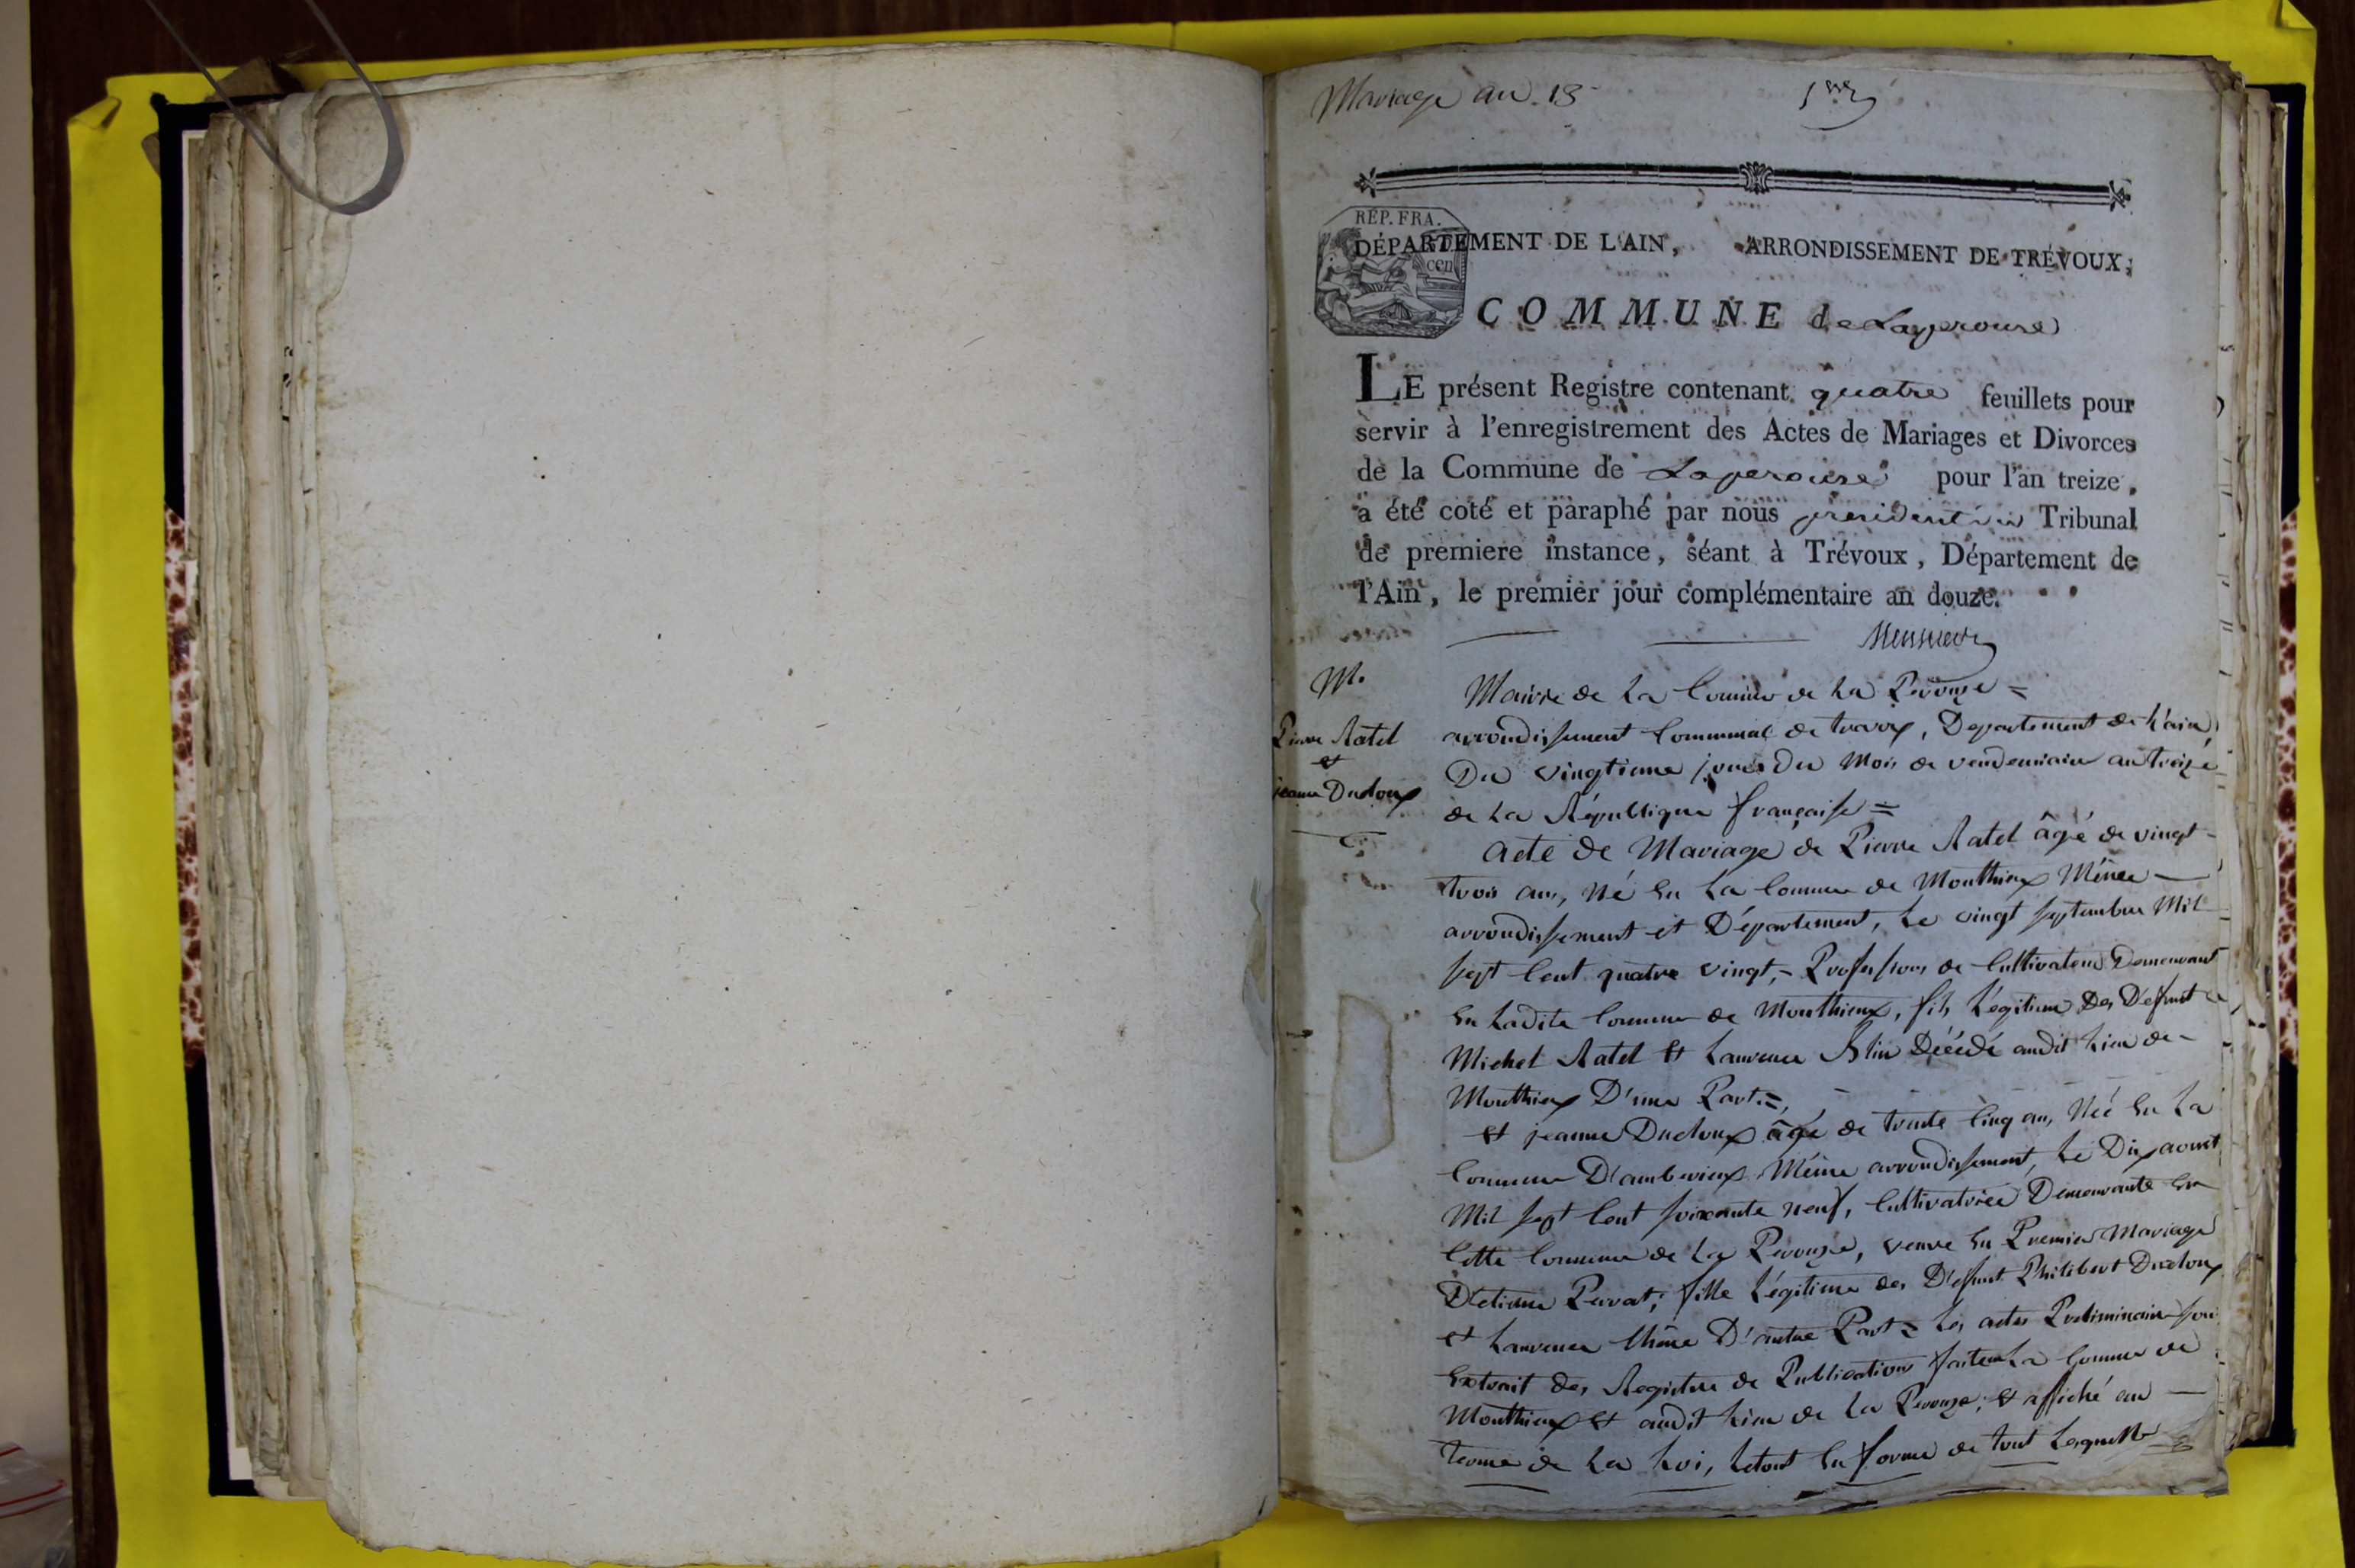 Mariage an 13
1er
RÉP. FRA.
cen
DÉPARTEMENT DE L'AIN, ARRONDISSEMENT DE TRÉVOUX,
COMMUNE de Laperouse
LE présent Registre contenant quatre feuillets pour
servir à l'enregistrement des Actes de Mariages et Divorces
de la Commune de Laperouse pour l'an treize,
a été coté et paraphé par nous president du Tribunal
de premiere instance, séant à Trévoux, Département de
l'Ain, le premier jour complémentaire an douze.
M.
Pierre Ratel
et
jeanne Dudoux
Mairie de La Commune de La Perouze =
arrondissement Communal de Departement de L'ain,
Du vingtieme jour Du Mois de vendemiaire an treize
de La République française =
acte de Mariage de Pierre Ratel âgé de vingt
trois ans, Né En La Commune de Monthieux Même
arrondissement et Département, Le vingt septembre Mil
sept Cent quatre vingt, Profession de Cultivateur Demeurant
En Ladite Commune de Monthieux, fils Légitime Des Defunt
Michel Ratel Et Laurence Blin Décédé audit Lieu de
Monthieux D'une Part =,
Et jeanne Dudoux âgé de trente Cinq ans, Née En La
Commune D'amberieux Même arrondissement, Le Dix aoust
Mil sept Cent soixante neuf, Cultivatrice Demeurante En
Cette Commune de La Perouze, veuve En Premier Mariage
D'etienne Perrat; fille Légitime des Défunt Philibert Dudoux
et Laurence D'autre Part = Les actes Preliminaire sont
Extrait des Registre de Publication faite En La Commune de
Monthieux Et audit Lieu de La Perouze; Et affiché au
terme de La Loi, Letout En forme de tout Lesquelle